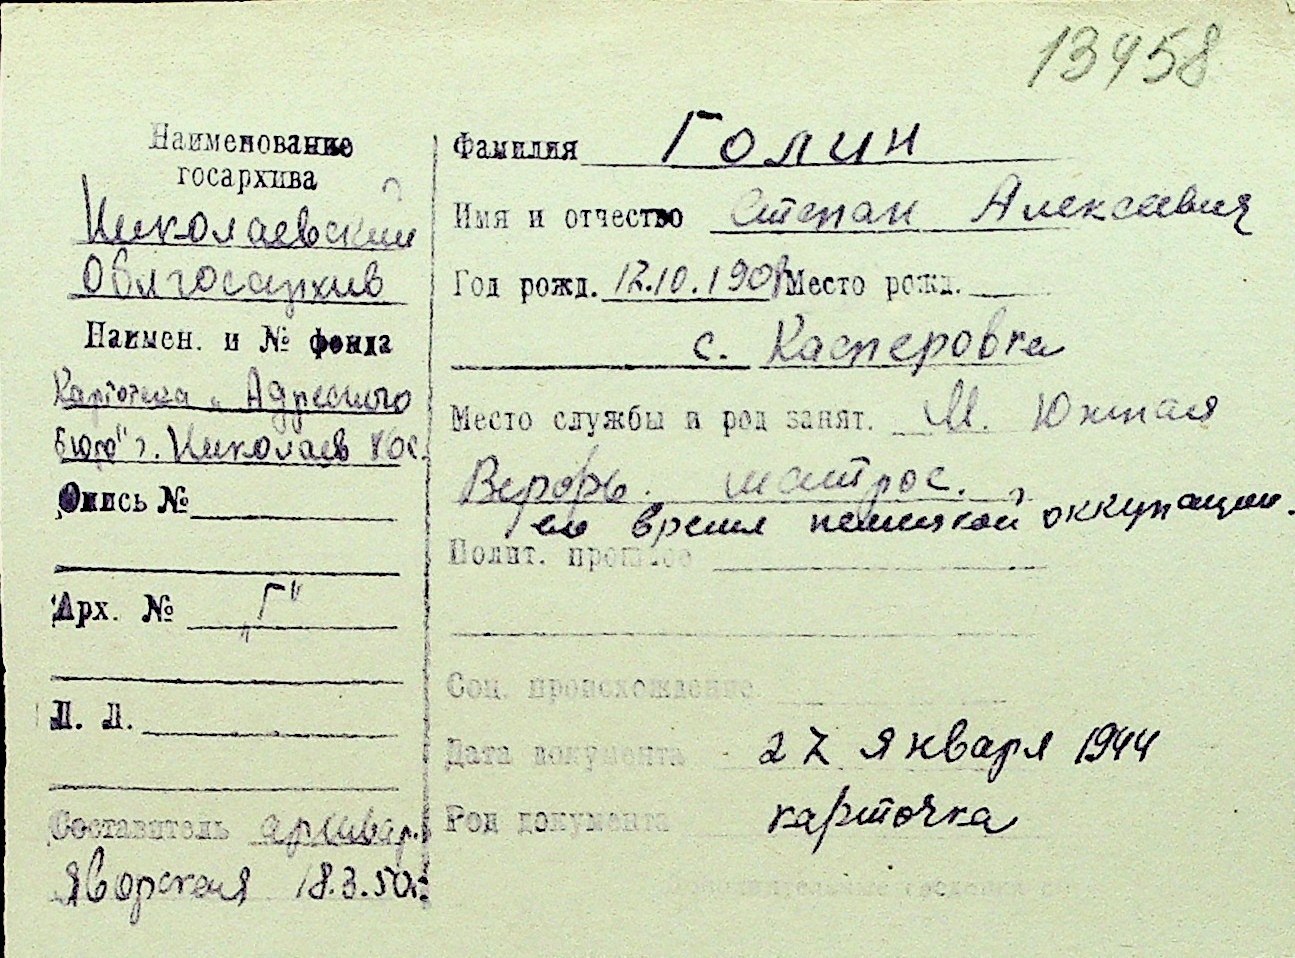 13458
Наименование
госархива
Николаевский
Облгосархив
Наимен. и № фонда
Картотека „Адресного
бюро" г. Николаев
Опись №
Арх. № „Г"
Л. Л.
Составитель архивар.
Яворская 18.3.50г.
Фамилия Голин
Имя и отчество Степан Алексеевич
Год рожд. 12.10.1908 Место рожд.
с. Касперовка
Место службы и род занят. М. Южная
Верфь. матрос.
во время немецкой оккупации.
Полит. прошлое
Соц. происхождение
Дата документа 27 января 1944
Род документа карточка